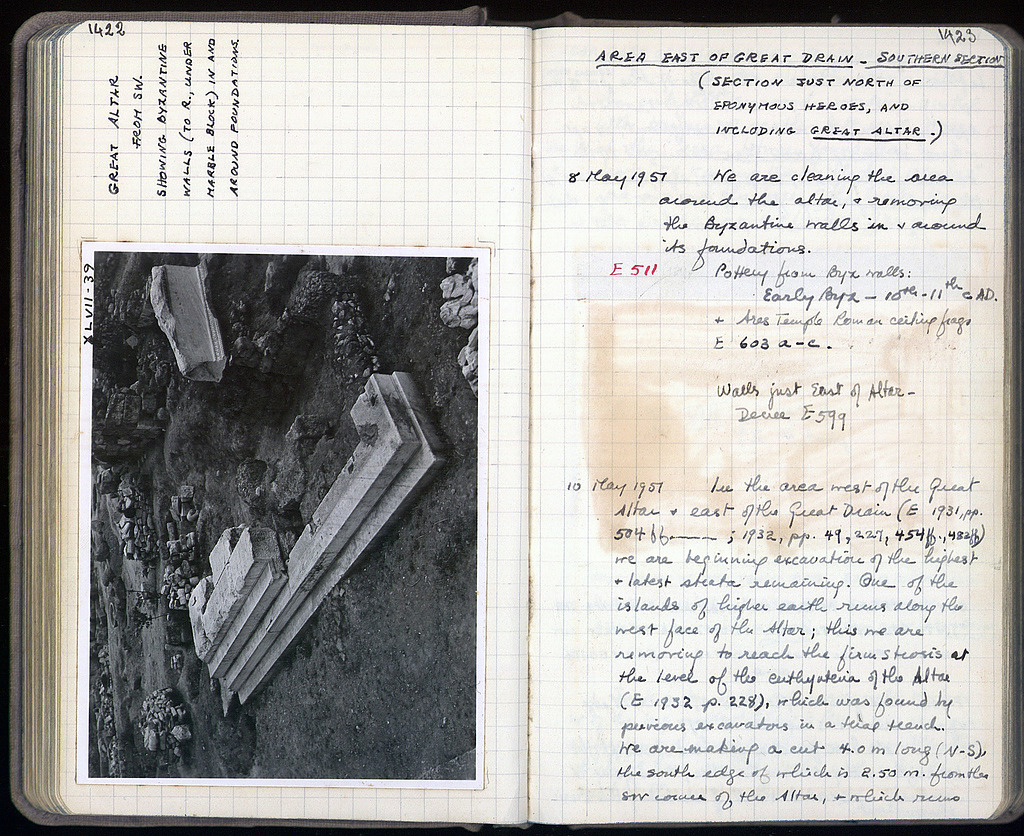 1422
GREAT ALTAR
FROM SW.
SHOWING BYZANTINE
WALLS (TO R., UNDER
MARBLE BLOCK) IN AND
AROUND FOUNDATIONS.
XLVII-39
1423
AREA EAST OF GREAT DRAIN - SOUTHERN SECTION
(SECTION JUST NORTH OF
EPONYMOUS HEROES, AND
INCLUDING GREAT ALTAR.)
8 May 1951 We are cleaning the area
around the altar, + removing
the Byzantine walls in + around
its foundations.
E 511 Pottery from Byz walls:
Early Byz - 10th-11th c AD.
+ Ares Temple Roman ceiling frags
E 603 a-c.
Walls just East of Altar -
E 599
10 May 1951 In the area west of the Great
Altar + east of the Great Drain (E 1931, pp.
504 ff ; 1932, pp. 49, 227, 454ff., 482ff)
we are beginning excavation of the highest
+ latest strata remaining. One of the
islands of higher earth runs along the
west face of the Altar; this we are
removing to reach the firm strosis at
the level of the euthynteria of the Altar
(E 1932 p. 228), which was found by
previous excavators in a trial trench.
We are making a cut 4.0 m long (N-S),
the south edge of which is 2.50 m. from the
SW corner of the Altar, + which runs